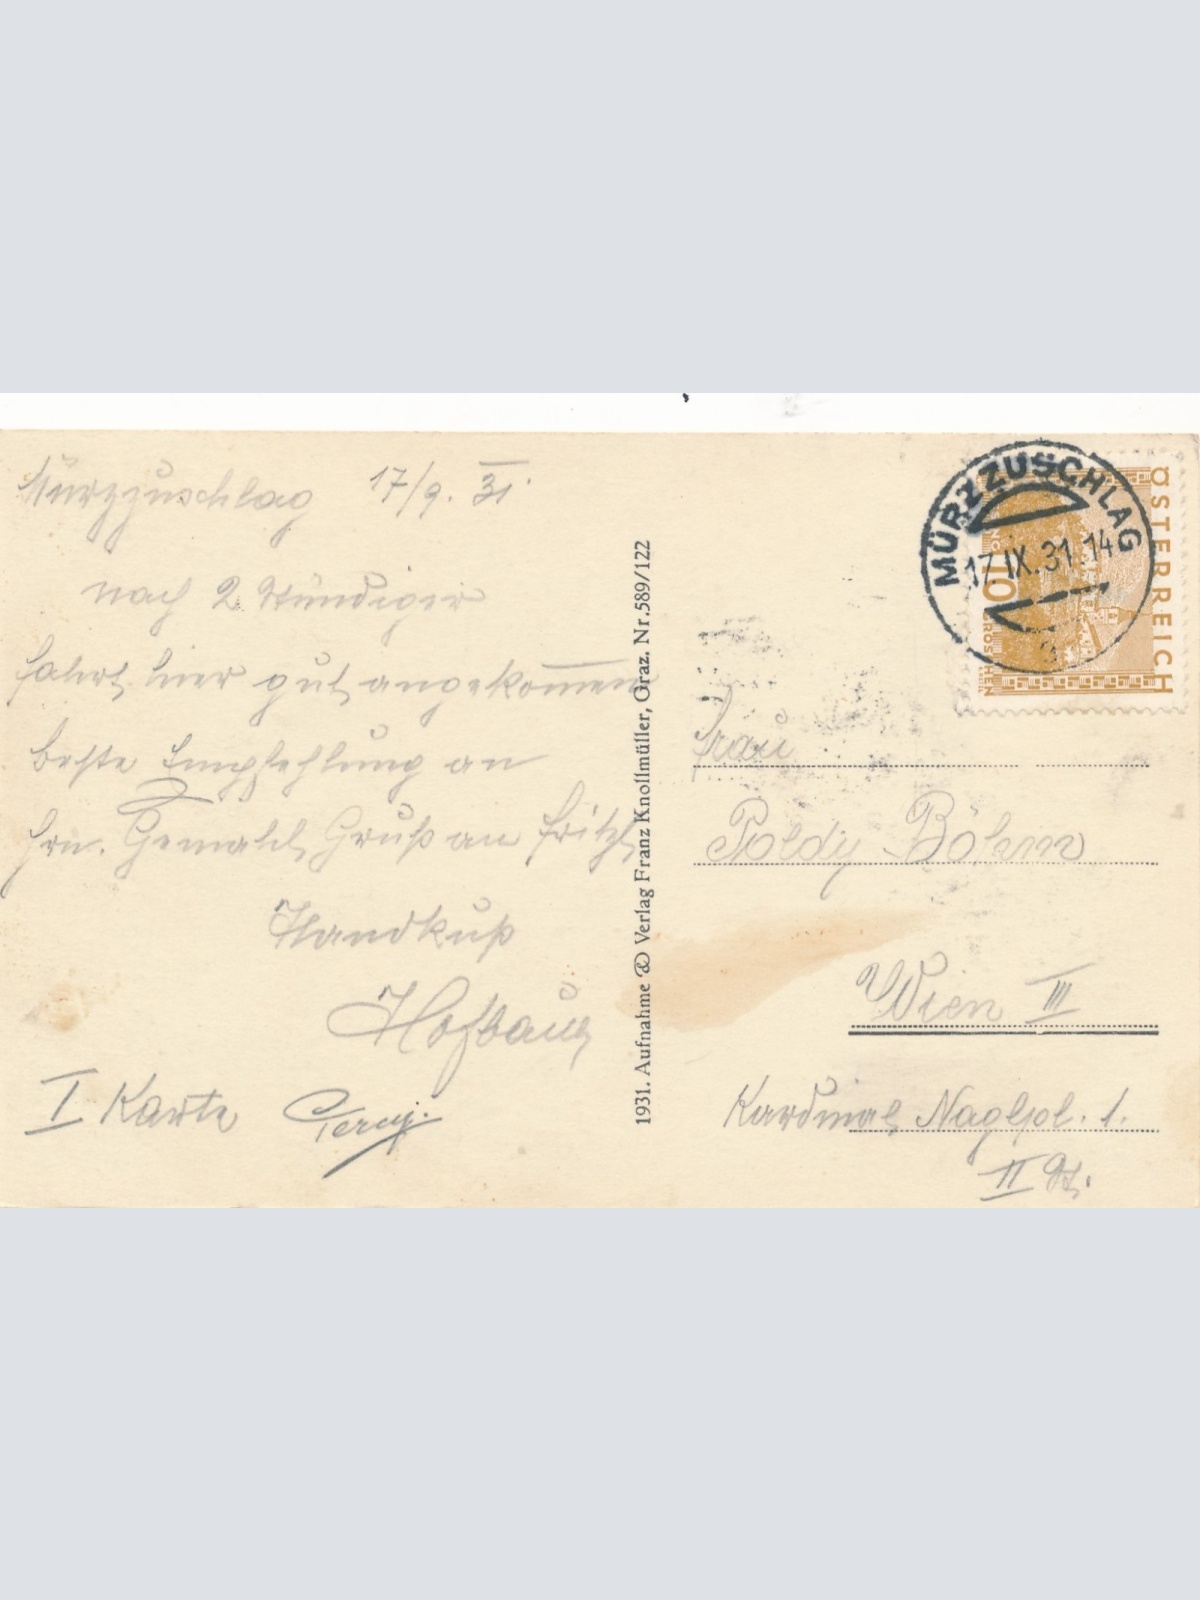 Mürzzuschlag 17/9. 31.
nach 2 stündiger
fahrt hier gut angekommen
beste Empfehlung an
Hrn. Gemahl, Gruß an Fritzl
Handkuß
Hofbauer
I Karte
1931. Aufnahme & Verlag Franz Knollmüller, Graz. Nr. 589/122
MÜRZZUSCHLAG
17.IX.31.14
ÖSTERREICH
10
GROSCHEN
Frau
Poldy Böhm
Wien III
Kardinal Naglpl. 1.
II St.